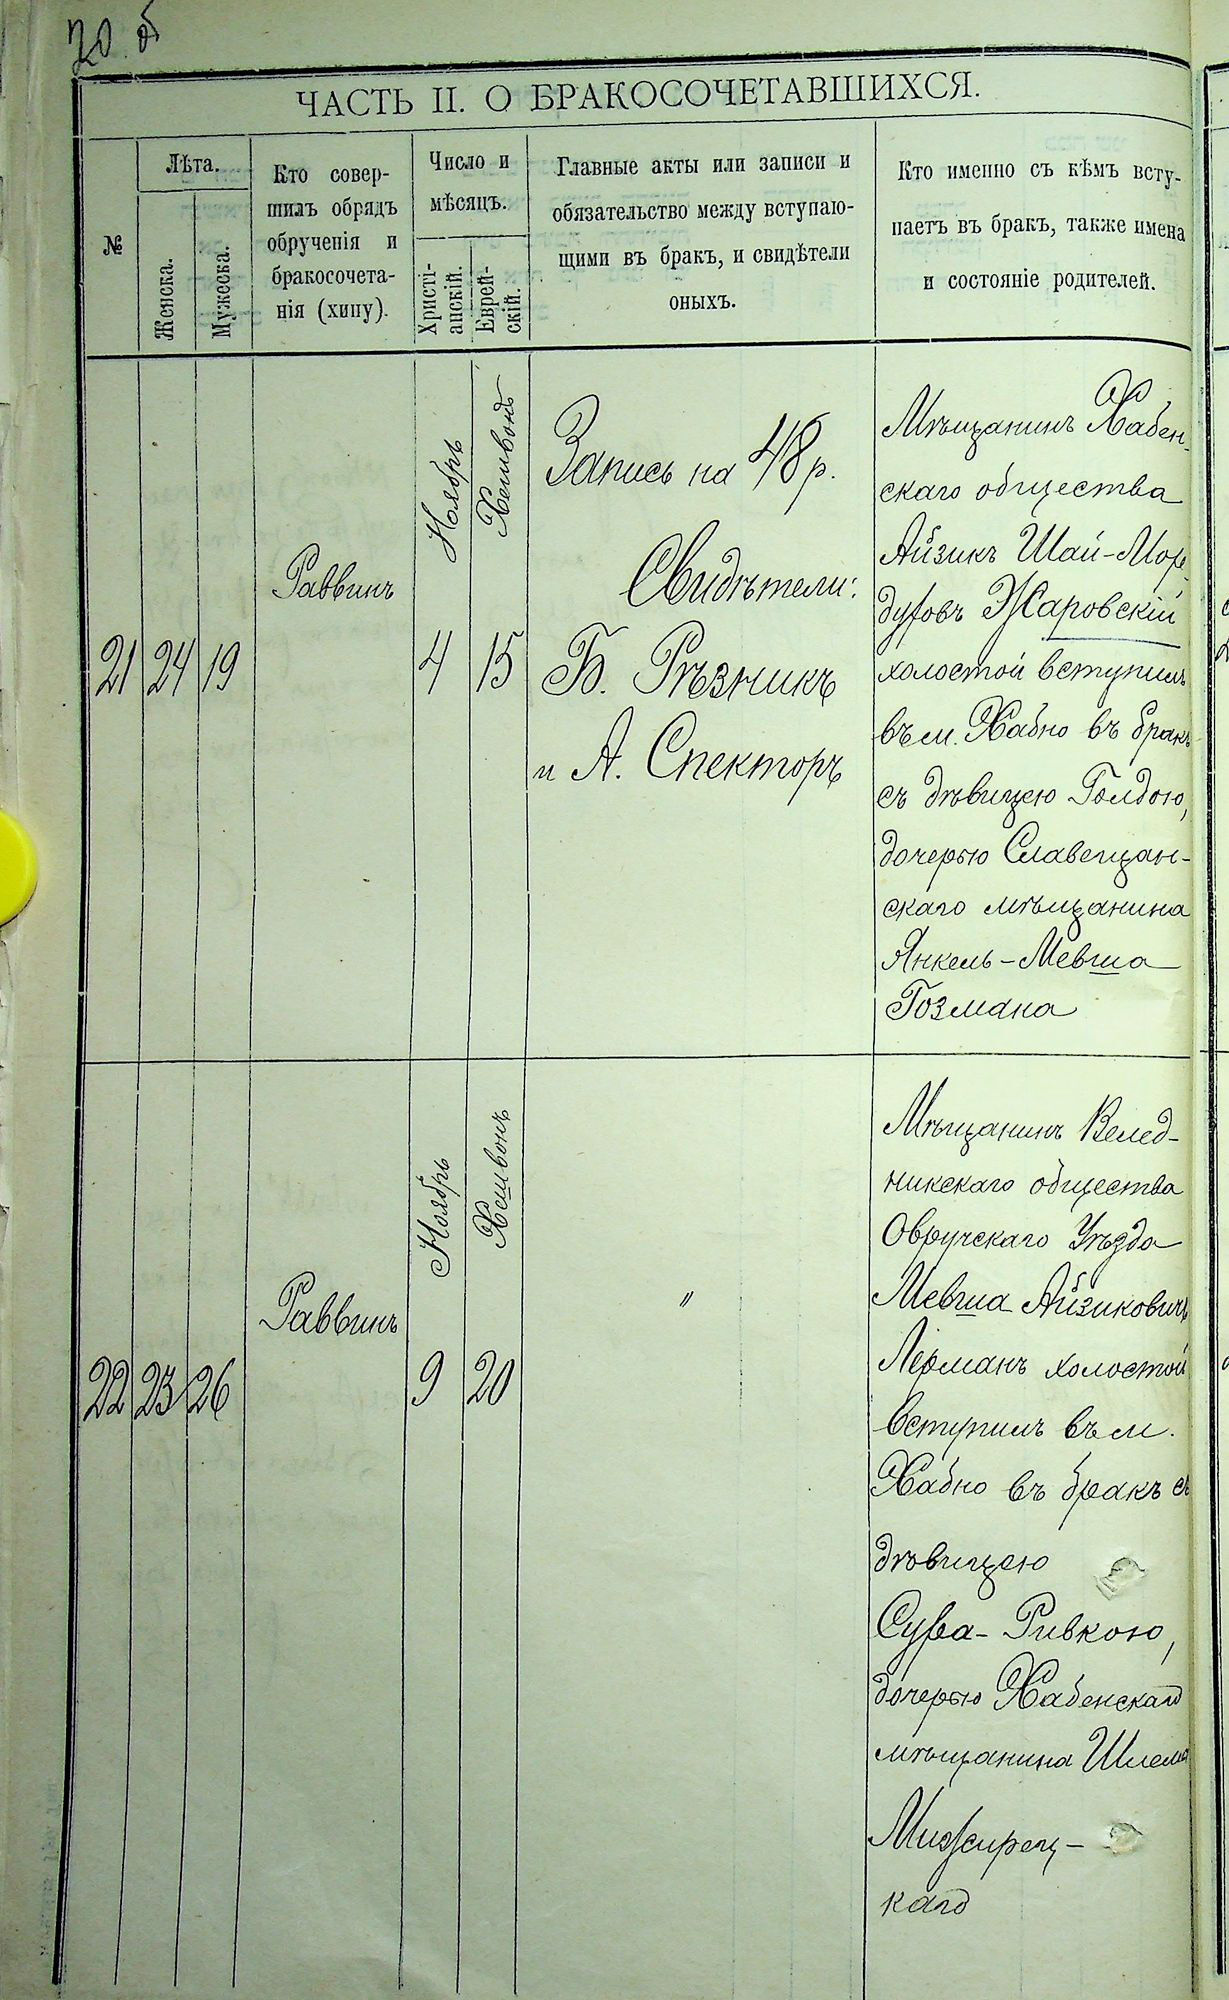 20 об
ЧАСТЬ II. О БРАКОСОЧЕТАВШИХСЯ.
№
Лѣта.
Женска.
Мужеска.
Кто совер-
шилъ обрядъ
обрученія и
бракосочета-
нія (хипу).
Число и
мѣсяцъ.
Христі-
анскій.
Еврей-
скій.
Главные акты или записи и
обязательство между вступаю-
щими въ бракъ, и свидѣтели
оныхъ.
Кто именно съ кѣмъ всту-
паетъ въ бракъ, также имена
и состояніе родителей.
21
24
19
Раввинъ
Ноябрь
4
Хешвонъ
15
Запись на 48 р.
Свидѣтели:
Б. Рѣзникъ
и А. Спекторъ
Мѣщанинъ Хабен-
скаго общества
Айзикъ Шай-Мор-
духовъ Жаровскій
холостой вступилъ
въ м. Хабно въ бракъ
съ дѣвицею Голдою,
дочерью Славещан-
скаго мѣщанина
Янкель-Мевша
Гозмана
22
23
26
Раввинъ
Ноябрь
9
Хешвонъ
20
"
Мѣщанинъ Велед-
никскаго общества
Овручскаго Уѣзда
Мевша Айзиковичъ
Лерманъ холостой
вступилъ въ м.
Хабно въ бракъ съ
дѣвицею
Сура-Ривкою,
дочерью Хабенскаго
мѣщанина Шлема
Мижирец-
каго